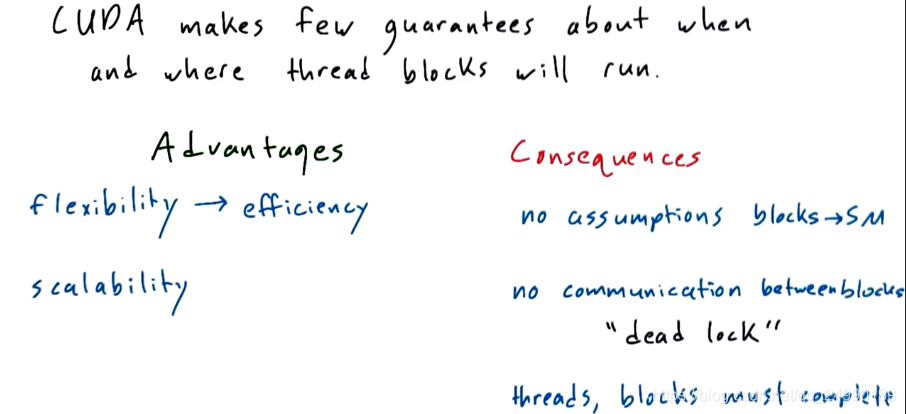 CUDA makes few guarantees about when
and where thread blocks will run.
Advantages
flexibility → efficiency
scalability
Consequences
no assumptions blocks→SM
no communication between blocks
"dead lock"
threads, blocks must complete